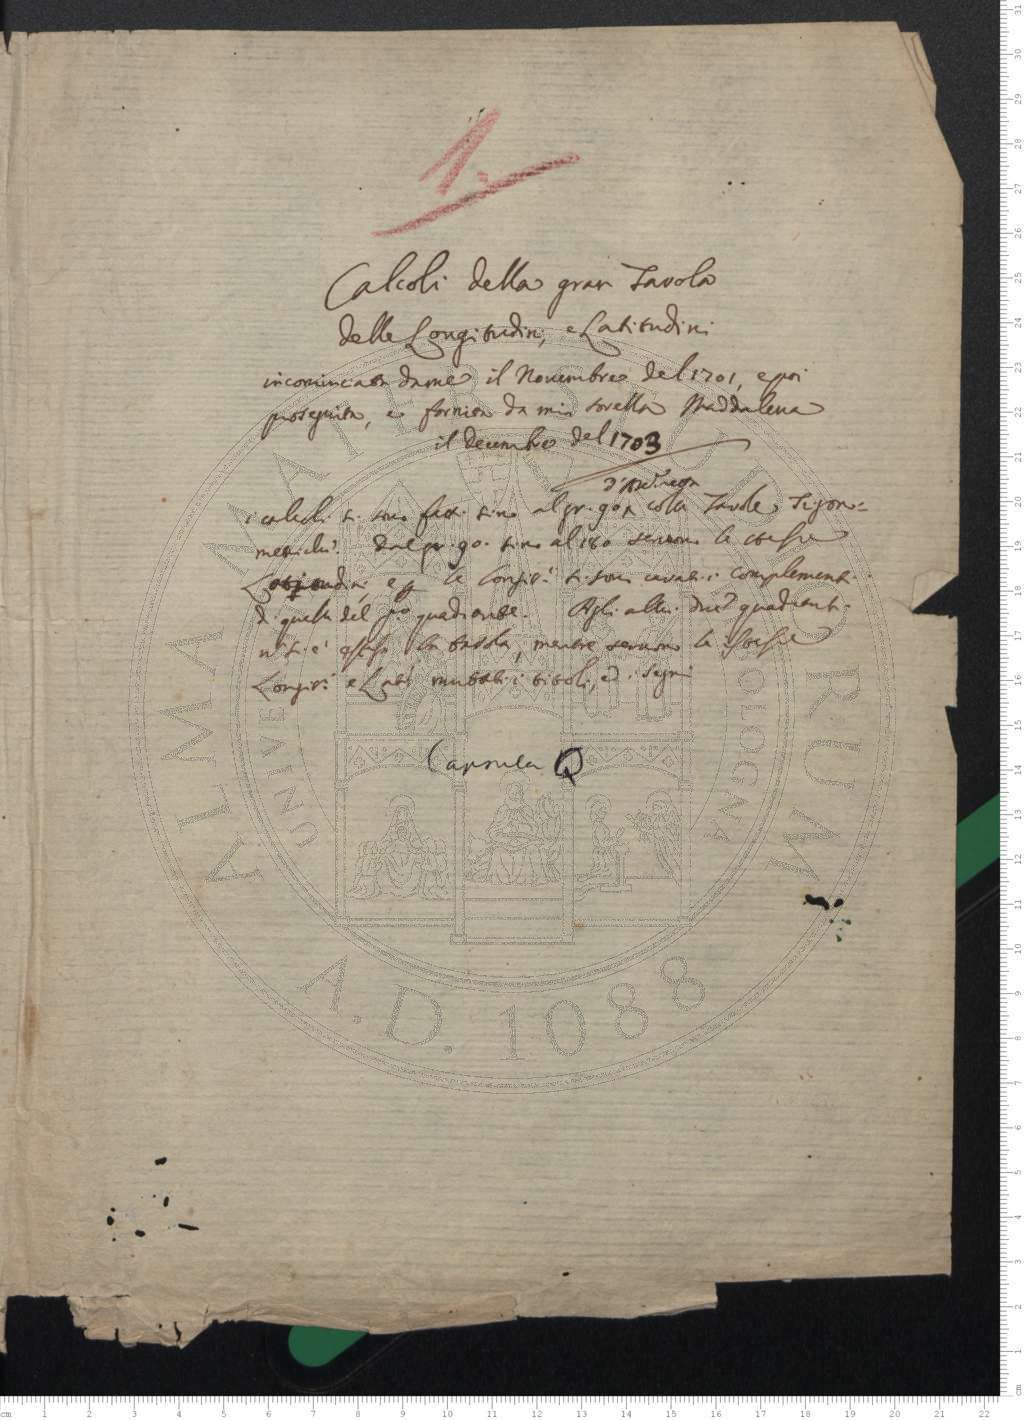 1.
Calcoli della gran Tavola
delle Longitudini, e Latitudini
incominciata da me il Novembre del 1701, e poi
proseguita, e fornita da mia sorella Maddalena
il decembre del 1703
i calcoli si sono fatti sino al gr. 90 colle Tavole Trigono=
metriche. Dal gr. 90. sino al 180 servono le stesse
Latitudini, e le Longit.i si sono cavati i complementi
di quelle del p.o quadrante. Agli altri due quadranti
n si è estesa la tavola, mentre servono le stesse
Longit.i e Lat.i mutati i titoli, ed i segni
Capsula Q
ALMA MATER STUDIORUM
UNIVERSITÀ DI BOLOGNA
A.D. 1088